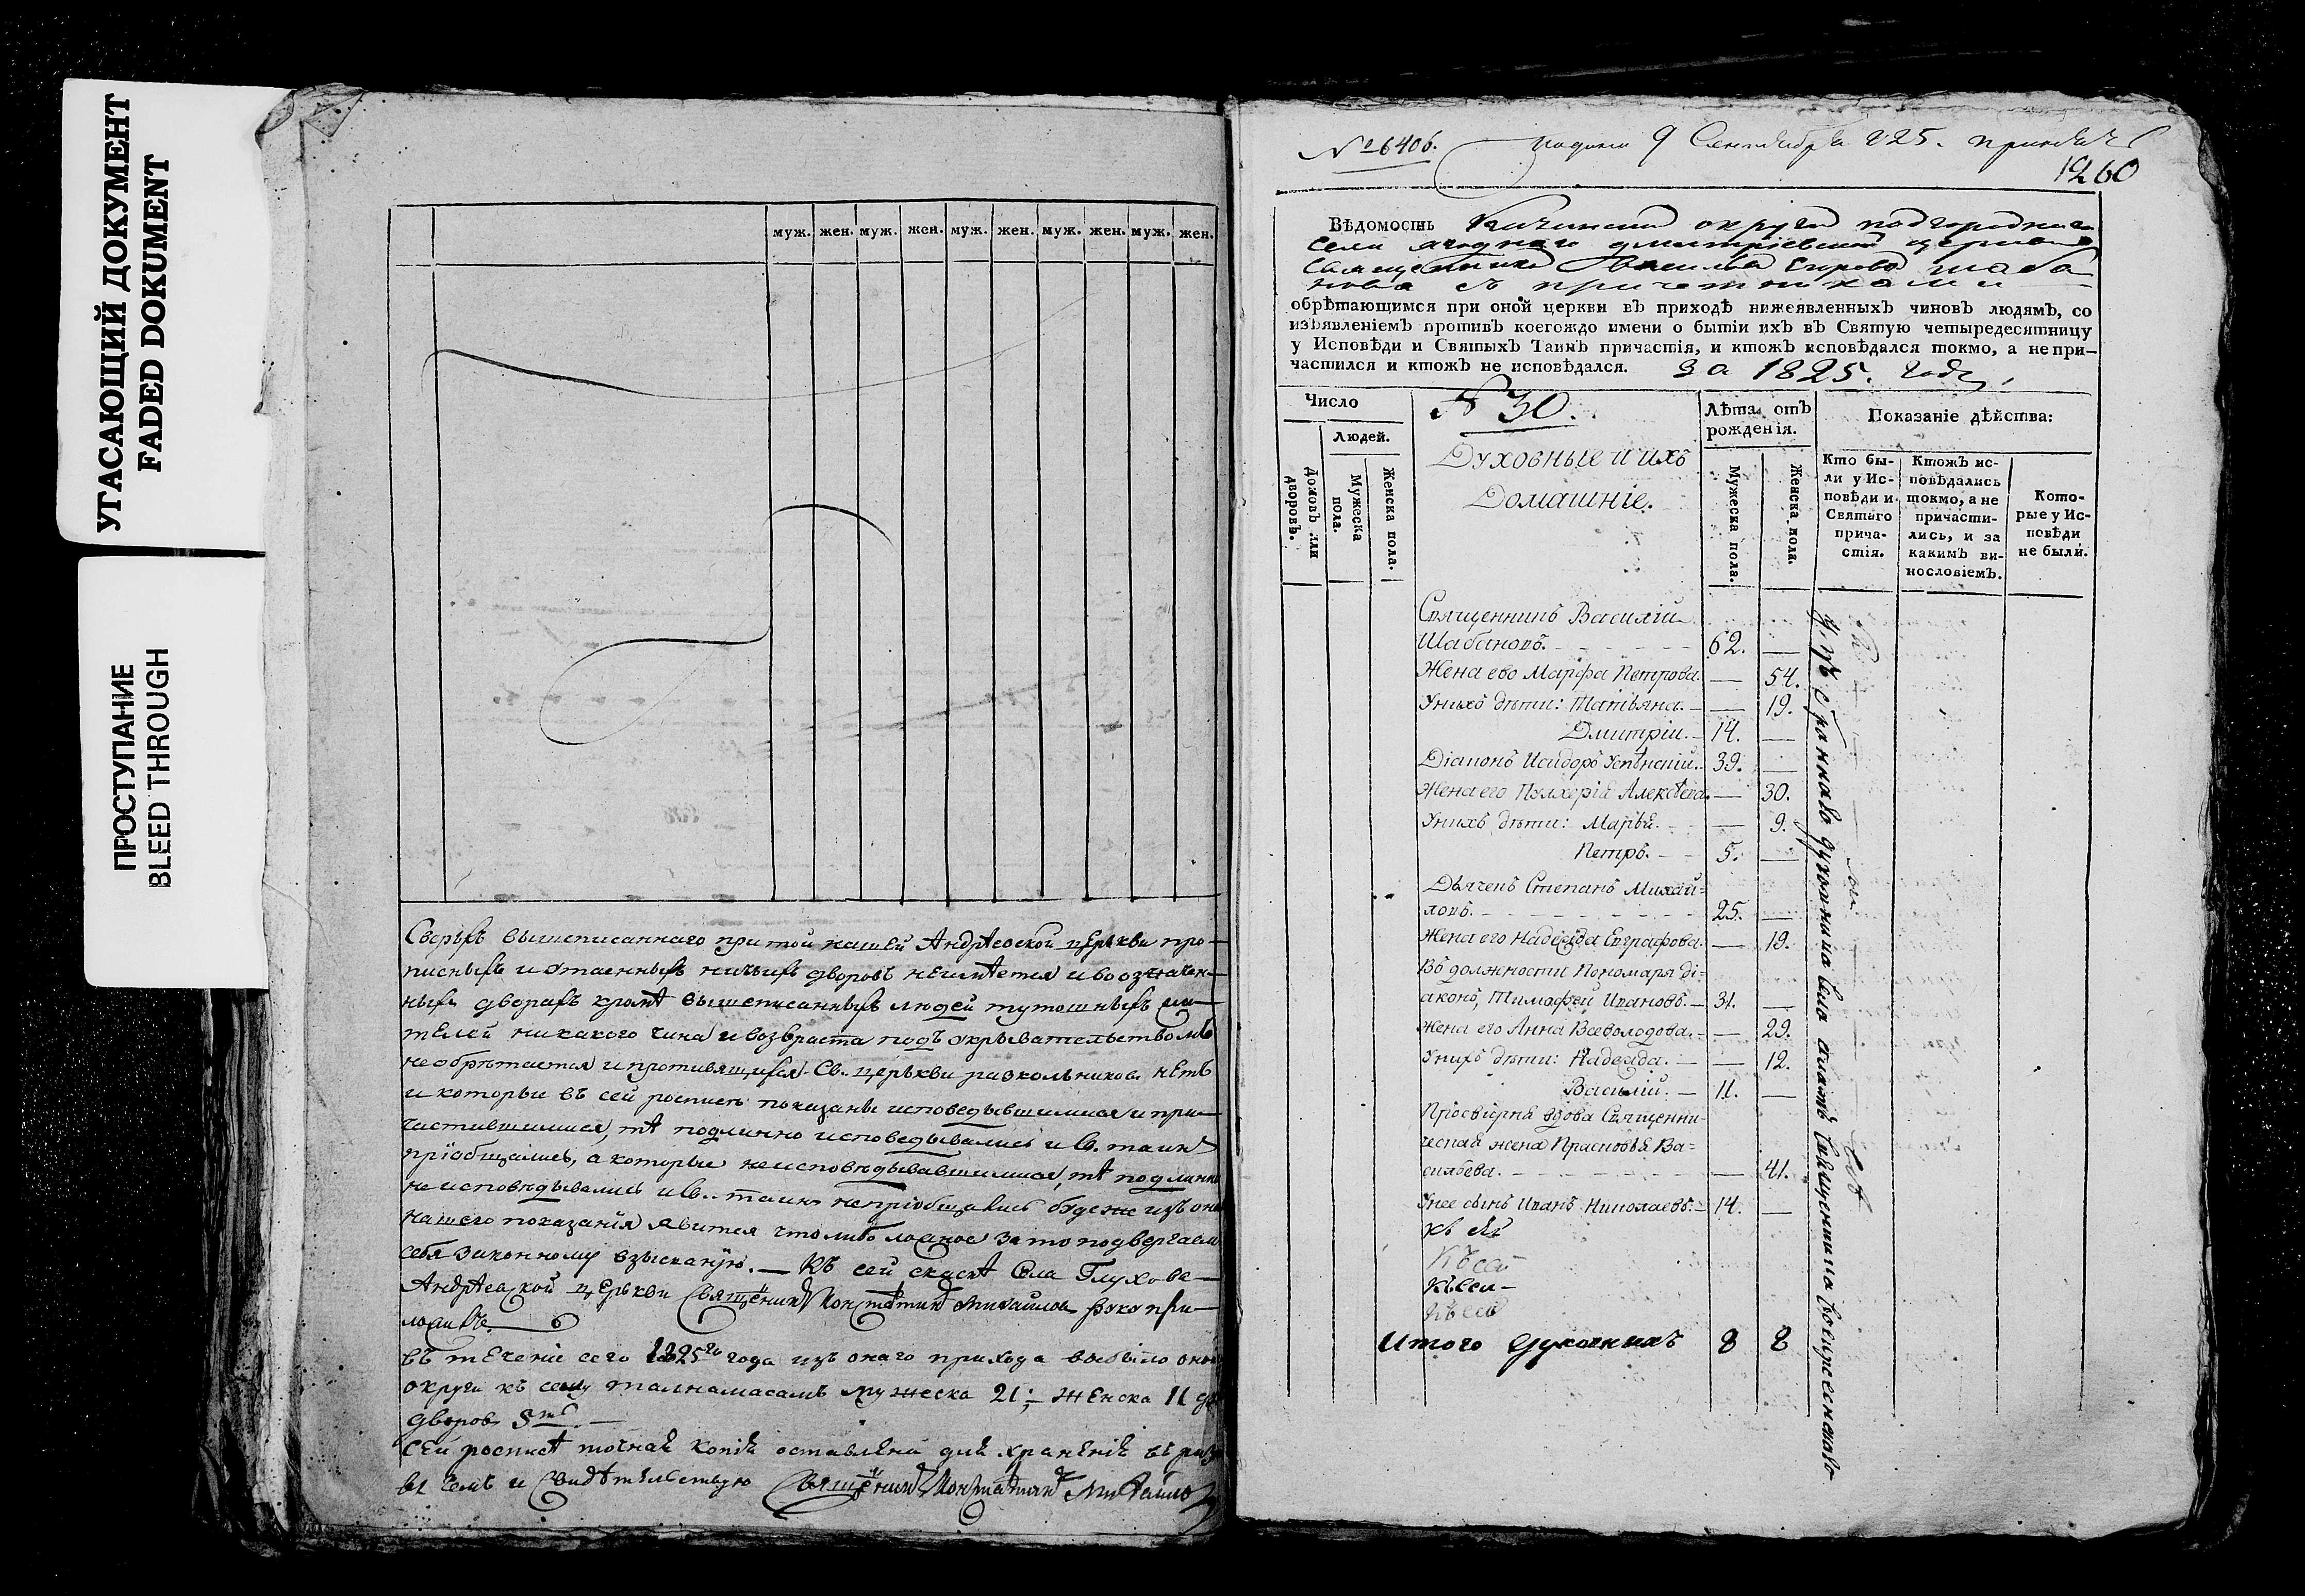 УГАСАЮЩИЙ ДОКУМЕНТ
FADED DOKUMENT
ПРОСТУПАНИЕ
BLEED THROUGH
муж. жен. муж. жен. муж. жен. муж. жен. муж. жен.
вышеписаннаго при той нашей Андрѣевской церькви про-
писныхъ и утаенныхъ ничьихъ дворовъ неимѣется и во означен-
ныхъ дворахъ кромѣ вышеписанныхъ людей тутошныхъ жи-
телей никакого чина и возвраста подъ укрывательствомъ
необрѣтается и противящихся Св. церькви раскольниковъ нетъ
и которые въ сей росписи показаны исповедывшимися и при-
частившимися, тѣ подлинно исповедывались и Св. таинъ
пріобщались, а которые неисповѣдывавшимися, тѣ подлинно
неисповѣдывались и Св. таинъ непріобщались буде же изъ
нашего показанія явится что либо ложное за то подвергаемъ
себя законному взысканію. — Къ сей скаскѣ Села Глухова
Андрѣевской церькви Священникъ Константинъ Михайловъ руку при-
ложилъ
въ теченіе сего 1825го года изъ онаго прихода выбыло оной
округи къ селу мужеска 21; женска 11
дворовъ
Сей росписи точная копія оставлена для храненія въ
въ чемъ и Свидѣтельствую Священникъ Константинъ Михайловъ
№ 6406. 9 Сентября 825.
1260
Вѣдомость округи подгороднаго
села ягоднаго дмитріевской церкви
Священника Василья Шаба
нова съ причетниками
обрѣтающимся при оной церкви въ приходѣ нижеявленныхъ чиновъ людямъ, со
изъявленіемъ противъ коегождо имени о бытіи ихъ въ Святую четыредесятницу
у Исповѣди и Святыхъ Таинъ причастія, и ктожъ исповѣдался токмо, а не при-
частился и ктожъ не исповѣдался. За 1825. годъ
Число
Людей.
Домовъ или дворовъ.
Мужеска пола.
Женска пола.
№ 30.
Духовные и ихъ
Домашніе.
Лѣта отъ
рожденія.
Мужеска пола.
Женска пола.
Показаніе дѣйства:
Кто бы-
ли у Ис-
повѣди и
Святаго
прича-
стія.
Ктожъ ис-
повѣдались
токмо, а не
причасти-
лись, и за
какимъ ви-
нословіемъ.
Кото-
рые у Ис-
повѣди
не были.
Священникъ Василій
Шабановъ. 62. —
Жена ево Марфа Петрова. — 54.
Унихъ дѣти: Татьяна. — 19.
Дмитрій. 14. —
Діаконъ Исидоръ Успѣнскій. 39. —
Жена его Пулхерія Алексѣева. — 30.
Унихъ дѣти: Марья. — 9.
Петръ. 5. —
Дьячекъ Степанъ Михай-
ловъ. 25. —
Жена его Надежда Евграфова. — 19.
Въ должности Пономаря ді-
аконъ, Тимофей Ивановъ. 31. —
Жена его Анна Всеволодова. — 29.
Унихъ дѣти: Надежда. — 12.
Василій. 11. —
Просвирня вдова Священни-
ческая жена Прасковья Ва-
сильева. — 41.
Унее сынъ Иванъ Николаевъ. 14. —
Къ сей
Итого духовныхъ 8 8